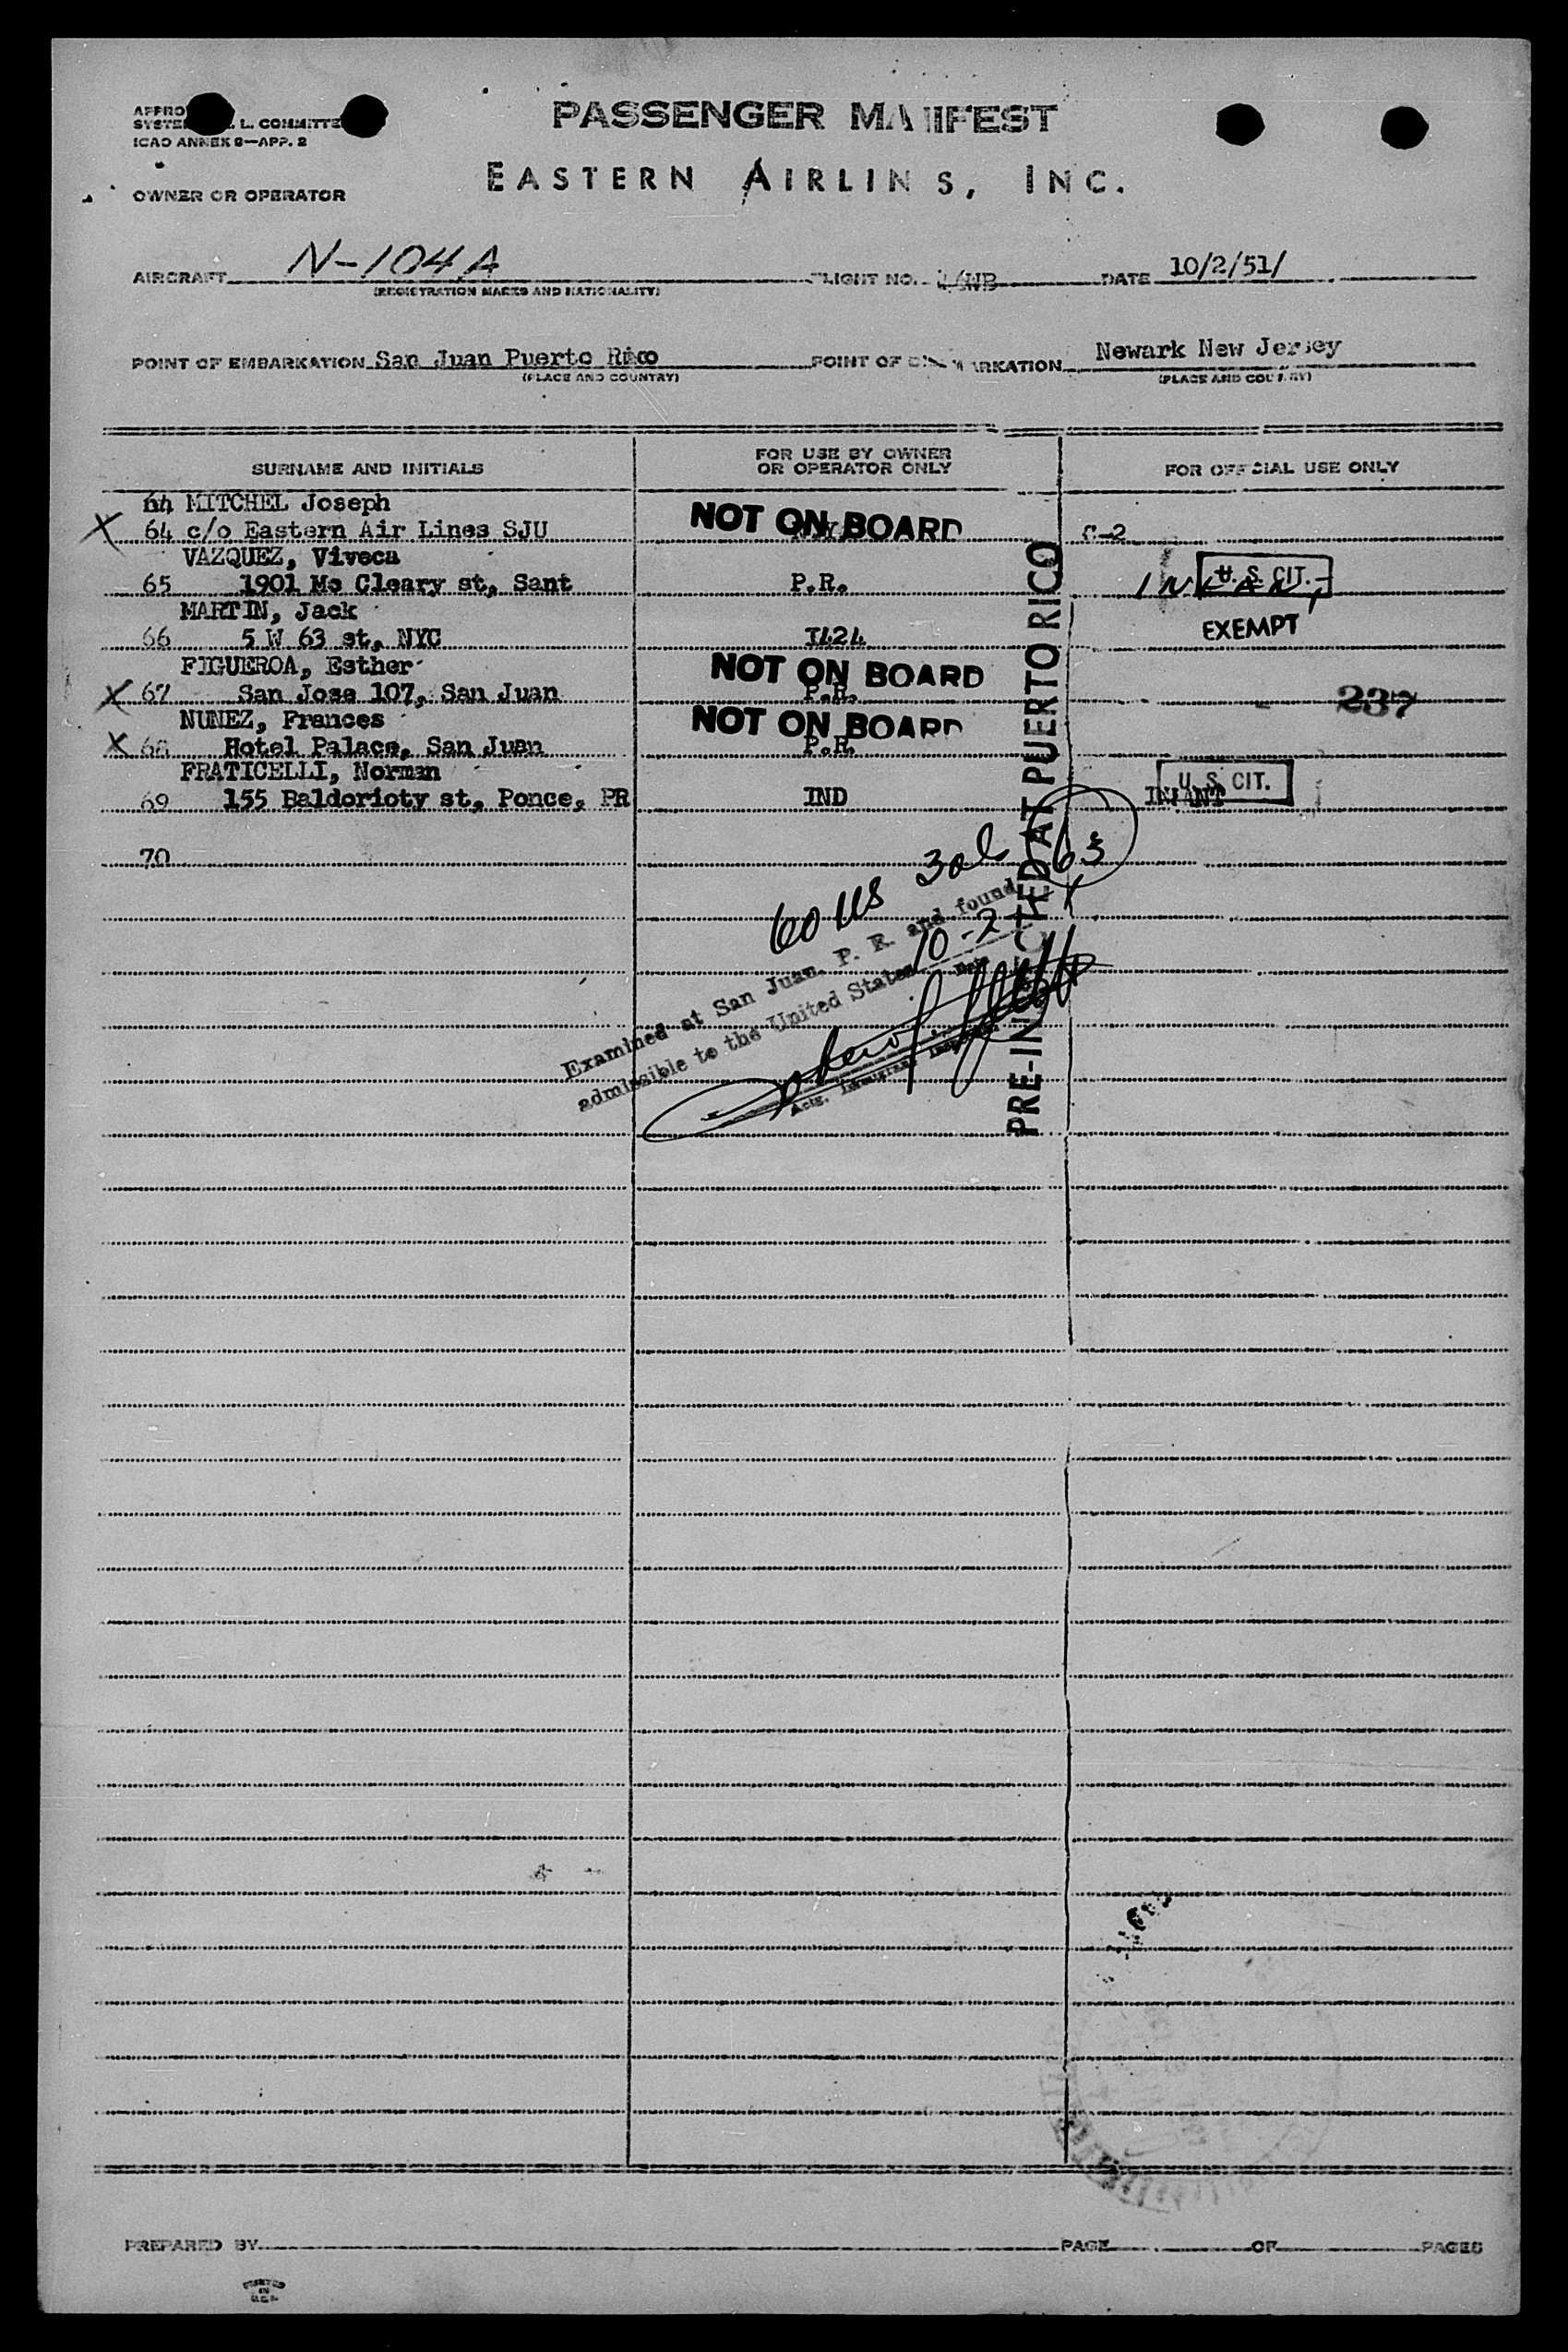 PASSENGER MANIFEST
L. COMMITTE
ICAO ANNEX 9—APP. 2
EASTERN AIRLIN S, INC.
OWNER OR OPERATOR
AIRCRAFT N-104A FLIGHT NO. DATE 10/2/51/
(REGISTRATION MARKS AND NATIONALITY)
POINT OF EMBARKATION San Juan Puerto Rico POINT OF Newark New Jersey
(PLACE AND COUNTRY) (PLACE AND COUNTRY)
SURNAME AND INITIALS FOR USE BY OWNER OR OPERATOR ONLY FOR OFFICIAL USE ONLY
MITCHEL Joseph
X 64 c/o Eastern Air Lines SJU NOT ON BOARD C-2
VAZQUEZ, Viveca
65 1901 Mc Cleary st, Sant P.R. INFANT U. S. CIT.
MARTIN, Jack
66 5 W 63 st, NYC I424 EXEMPT
FIGUEROA, Esther
X 67 San Jose 107, San Juan NOT ON BOARD P.R. 237
NUNEZ, Frances
X 68 Hotel Palace, San Juan NOT ON BOARD P.R.
FRATICELLI, Norman
69 155 Baldorioty st, Ponce, PR IND INFANT U. S. CIT.
70
60 US 3 al 63
Examined at San Juan, P. R. and found
admissible to the United States 10-2
Date
Actg. Immigrant Inspector
PRE-INSPECTED AT PUERTO RICO
PREPARED BY PAGE OF PAGES
PRINTED
IN
U.S.A.